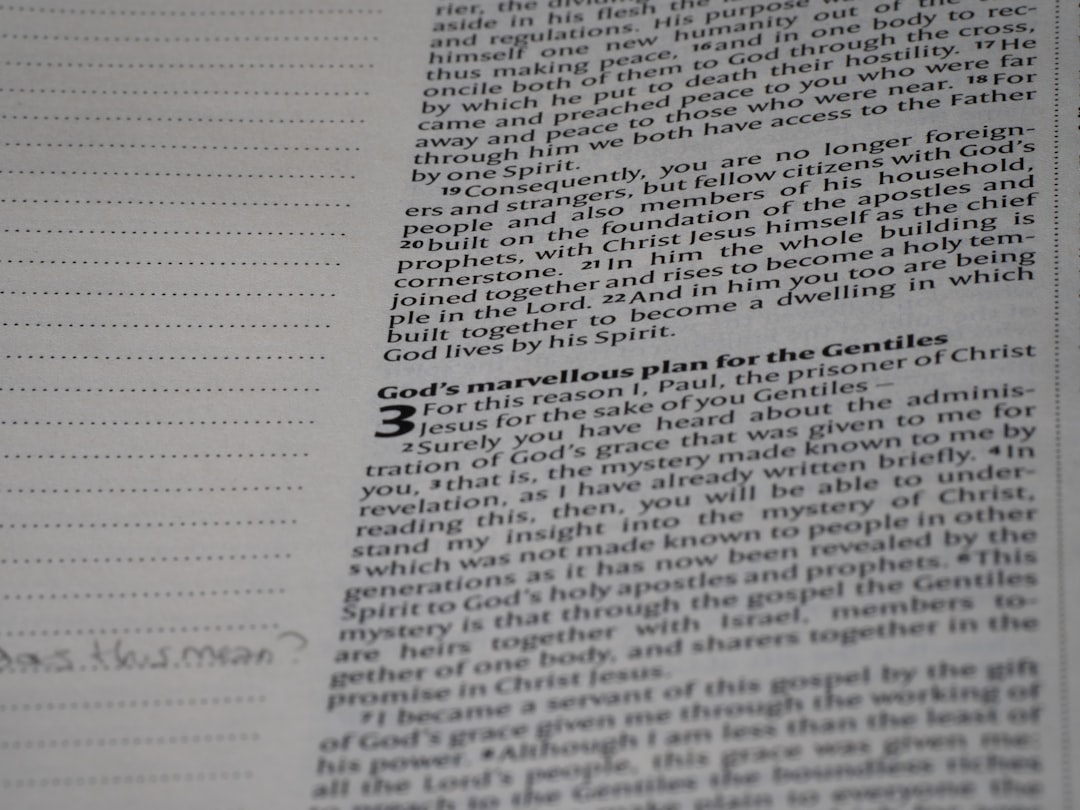 rier, the dividing
aside in his flesh the
and regulations. His purpose
himself one new humanity out of the
thus making peace, 16and in one body to rec-
oncile both of them to God through the cross,
by which he put to death their hostility. 17He
came and preached peace to you who were far
away and peace to those who were near. 18For
through him we both have access to the Father
by one Spirit.
19Consequently, you are no longer foreign-
ers and strangers, but fellow citizens with God's
people and also members of his household,
20built on the foundation of the apostles and
prophets, with Christ Jesus himself as the chief
cornerstone. 21In him the whole building is
joined together and rises to become a holy tem-
ple in the Lord. 22And in him you too are being
built together to become a dwelling in which
God lives by his Spirit.
God's marvellous plan for the Gentiles
3 For this reason I, Paul, the prisoner of Christ
Jesus for the sake of you Gentiles –
2Surely you have heard about the adminis-
tration of God's grace that was given to me for
you, 3that is, the mystery made known to me by
revelation, as I have already written briefly. 4In
reading this, then, you will be able to under-
stand my insight into the mystery of Christ,
5which was not made known to people in other
generations as it has now been revealed by the
Spirit to God's holy apostles and prophets. 6This
mystery is that through the gospel the Gentiles
are heirs together with Israel, members to-
gether of one body, and sharers together in the
promise in Christ Jesus.
7I became a servant of this gospel by the gift
of God's grace given me through the working of
his power. 8Although I am less than the least of
all the Lord's people, this grace was given me:
to preach to the Gentiles the boundless riches
make plain to everyone the
does this mean?